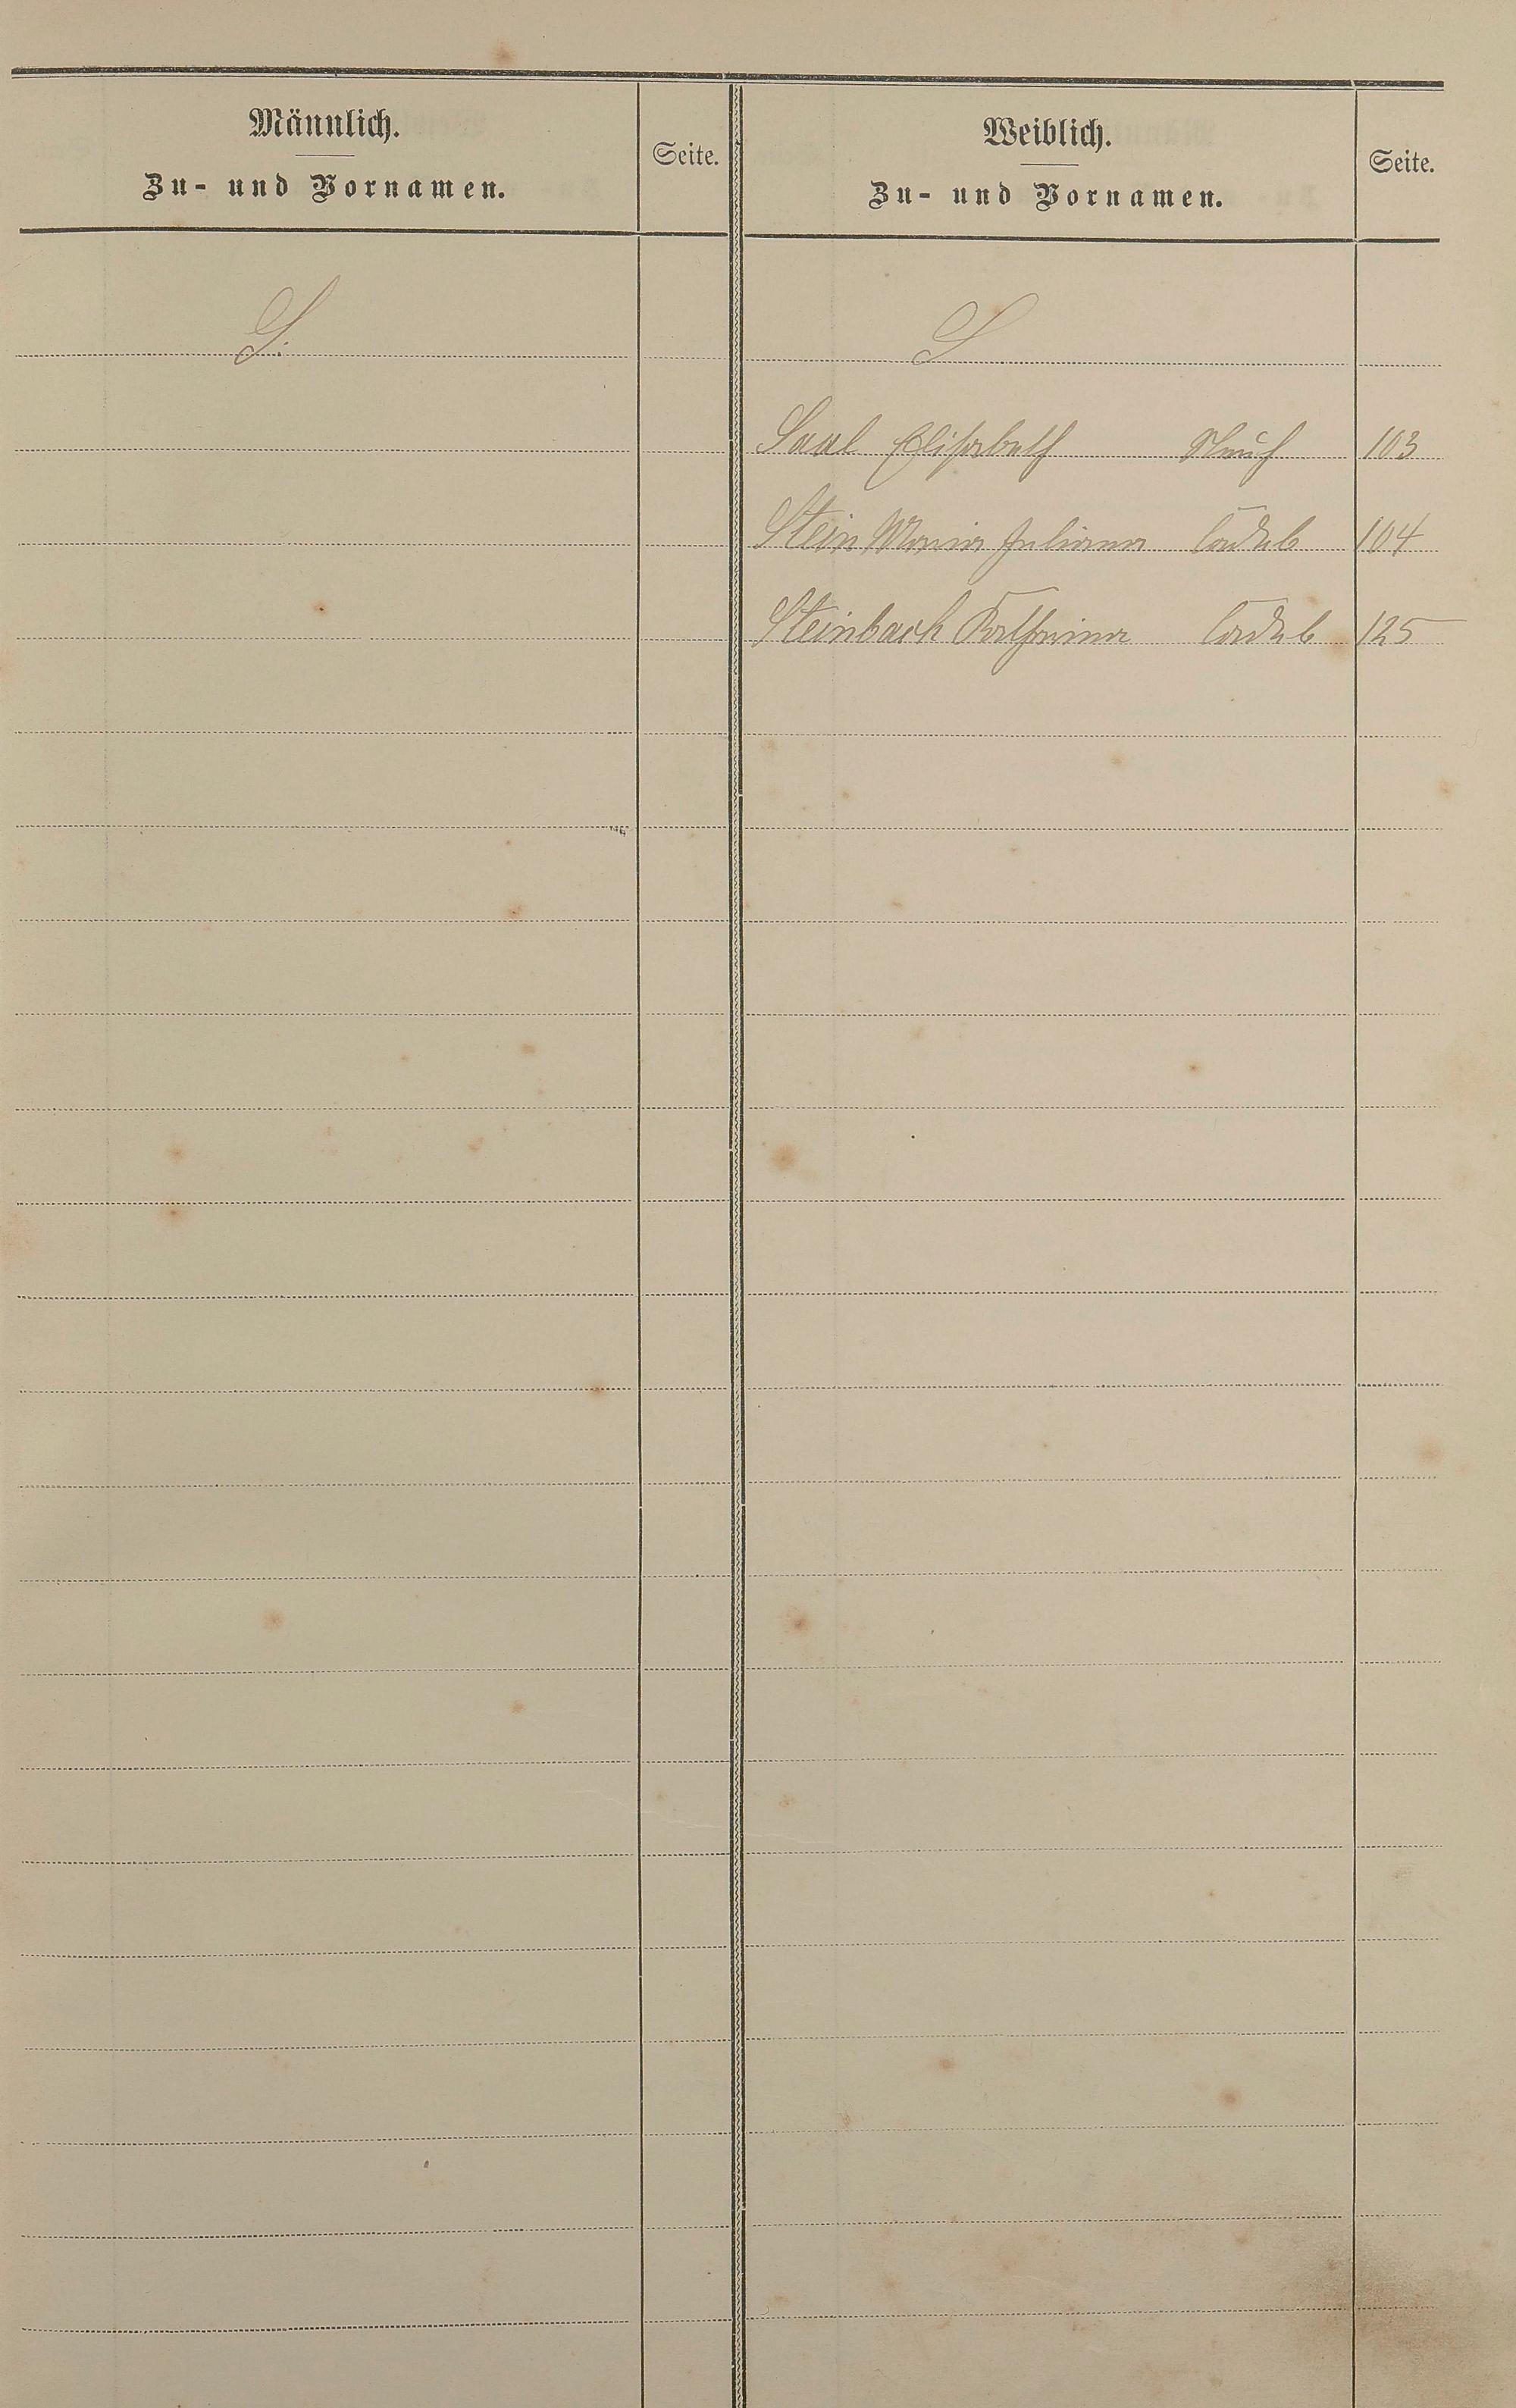 Männlich.
Zu- und Vornamen.
Seite.
Weiblich.
Zu- und Vornamen.
Seite.
S.
S
Saal Elisabeth 103
Stein Maria Juliana 104
Steinbach Katharina 125